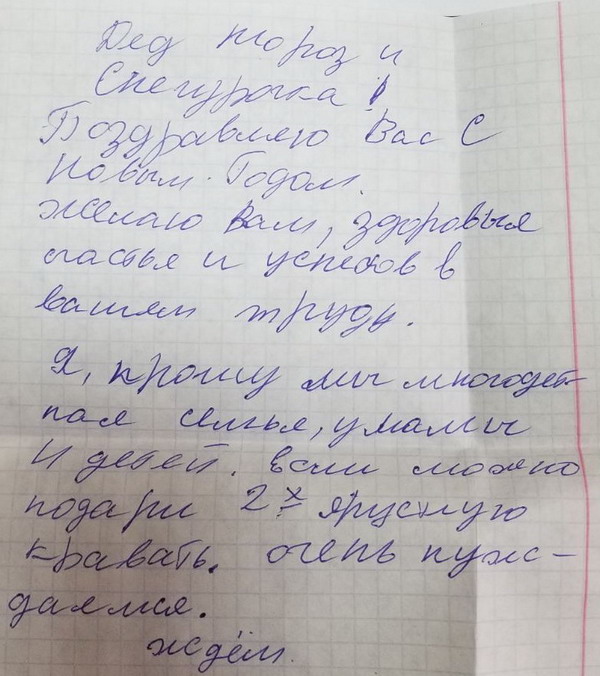 Дед мороз и
Снегурочка!
Поздравляю Вас С
Новым Годом.
желаю Вам, здоровья
счастья и успехов в
вашем труду.
Я, крошу мы многодет-
ная семья, у мамы
4 детей. если можно
подари 2х ярусную
кравать. очень нуж-
даемся.
ждём.